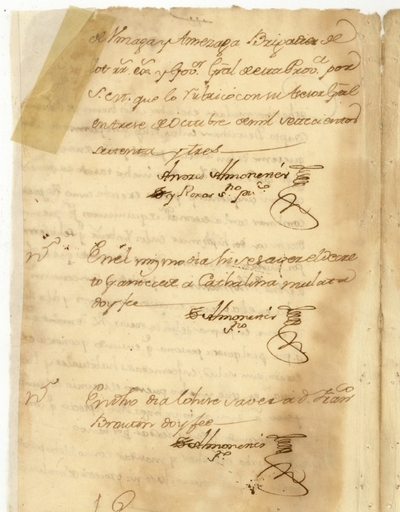 de Unzaga y Amezaga Brigadier de
los rr. exs. y Gov.r Gral de esta Prov.a por
S. M. que lo rubricó con su Aseor Gral
en trese de Octubre de mil setecientos
setenta y tres
Almonester
y Roxas
En el mismo dia hise saver el Decre
to q antecede a Cathalina mulata
doy fee
Almonester
En dho dia lo hise saver a d. Fran.co
Broutin doy fee
Almonester